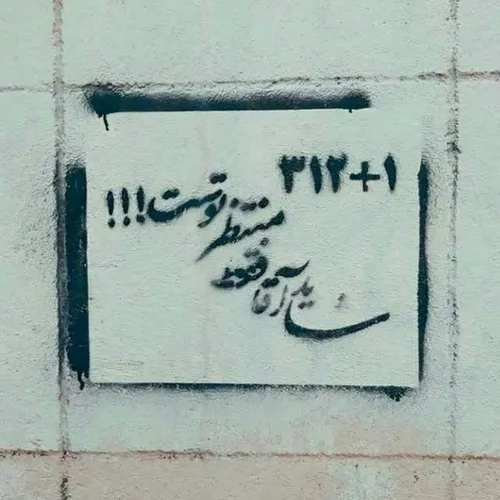 ۳۱۲+۱
منتظر توست!!!
شاید آقا فقط